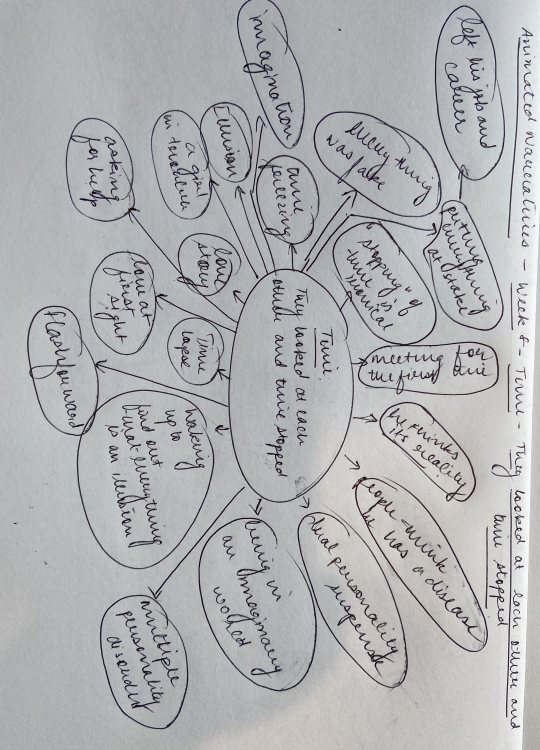 Animated Narratives - Week 8 - Time - They looked at each other and
time stopped
left his job and
career
putting
everything
at stake
everything
was fake
imagination
illusion
time
freezing
a girl
in tovation
asking
for help
love
story
love at
first
sight
time
lapse
flashforward
"stopping" of
time is
ironical
meeting for
the first time
he thinks
its reality
people think
he has a disease
dual personality
suspense
Time,
They looked at each
other and time stopped
waking
up to
find out
that everything
is an illusion
being in
an imaginary
world
multiple
personality
disorder